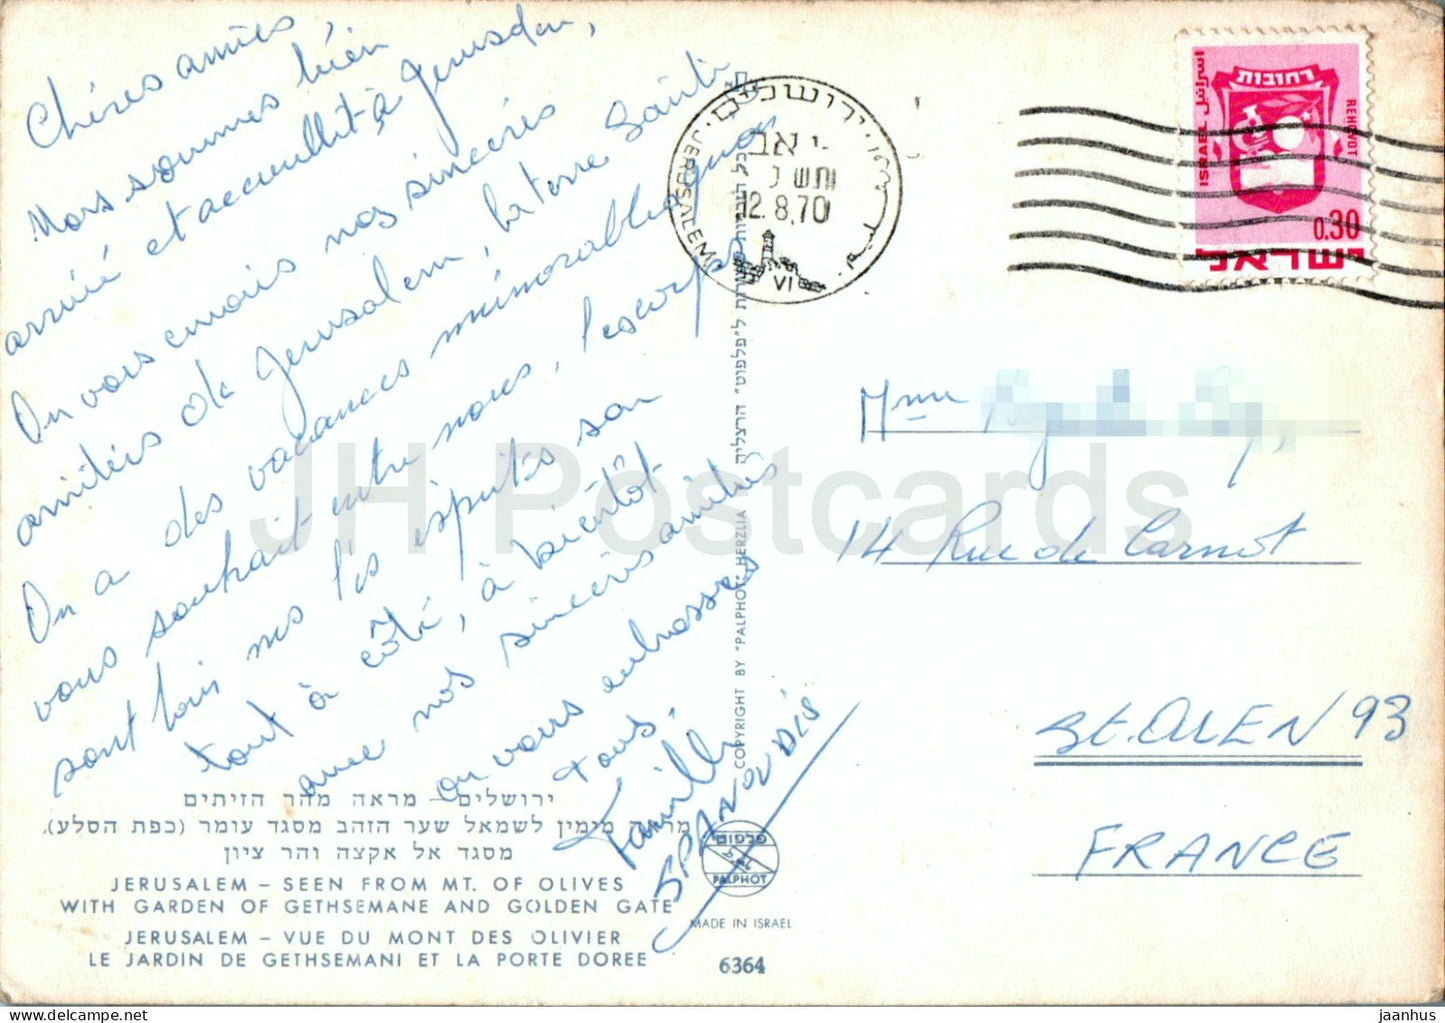 Chéres amies,
Nous sommes bien
arrivé et accueillit à Jerusalem,
On vous envois nos sincéres
amitiés de Jerusalem, la terre Sainte
On a des vacances mémorables
vous souhait entre nous, les corps
sont loin mes les esprits son
tout à côté, à bientôt
avec nos sincéris amitiés
on vous embrasses
tous.
Famille
SPANOUDIS
ירושלים – מראה מהר הזיתים
מימין לשמאל שער הזהב מסגד עומר (כפת הסלע),
מסגד אל אקצה והר ציון
JERUSALEM – SEEN FROM MT. OF OLIVES
WITH GARDEN OF GETHSEMANE AND GOLDEN GATE
JERUSALEM – VUE DU MONT DES OLIVIER
LE JARDIN DE GETHSEMANI ET LA PORTE DOREE
COPYRIGHT BY "PALPHOT" HERZLIA
ל"פלפוט" הרצליה
פלפוט
PALPHOT
MADE IN ISRAEL
6364
ירושלים
JERUSALEM
12.8.70
VI
רחובות
ISRAEL
اسرائيل
REHOVOT
0.30
ישראל
Mme
14 Rue de Carnot
St. OUEN 93
FRANCE
JH Postcards
jaanhus